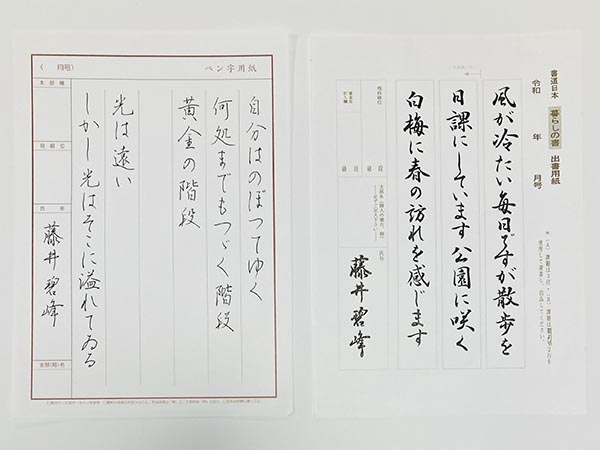 ペン字用紙
( 月号)
自分はのぼつてゆく
何処までもつゞく階段
黄金の階段
光は遠い
しかし光はそこに溢れてゐる
氏名
藤井碧峰
書道日本 暮らしの書 出書用紙
令和 年 月号
風が冷たい毎日ですが散歩を
日課にしています公園に咲く
白梅に春の訪れを感じます
藤井碧峰